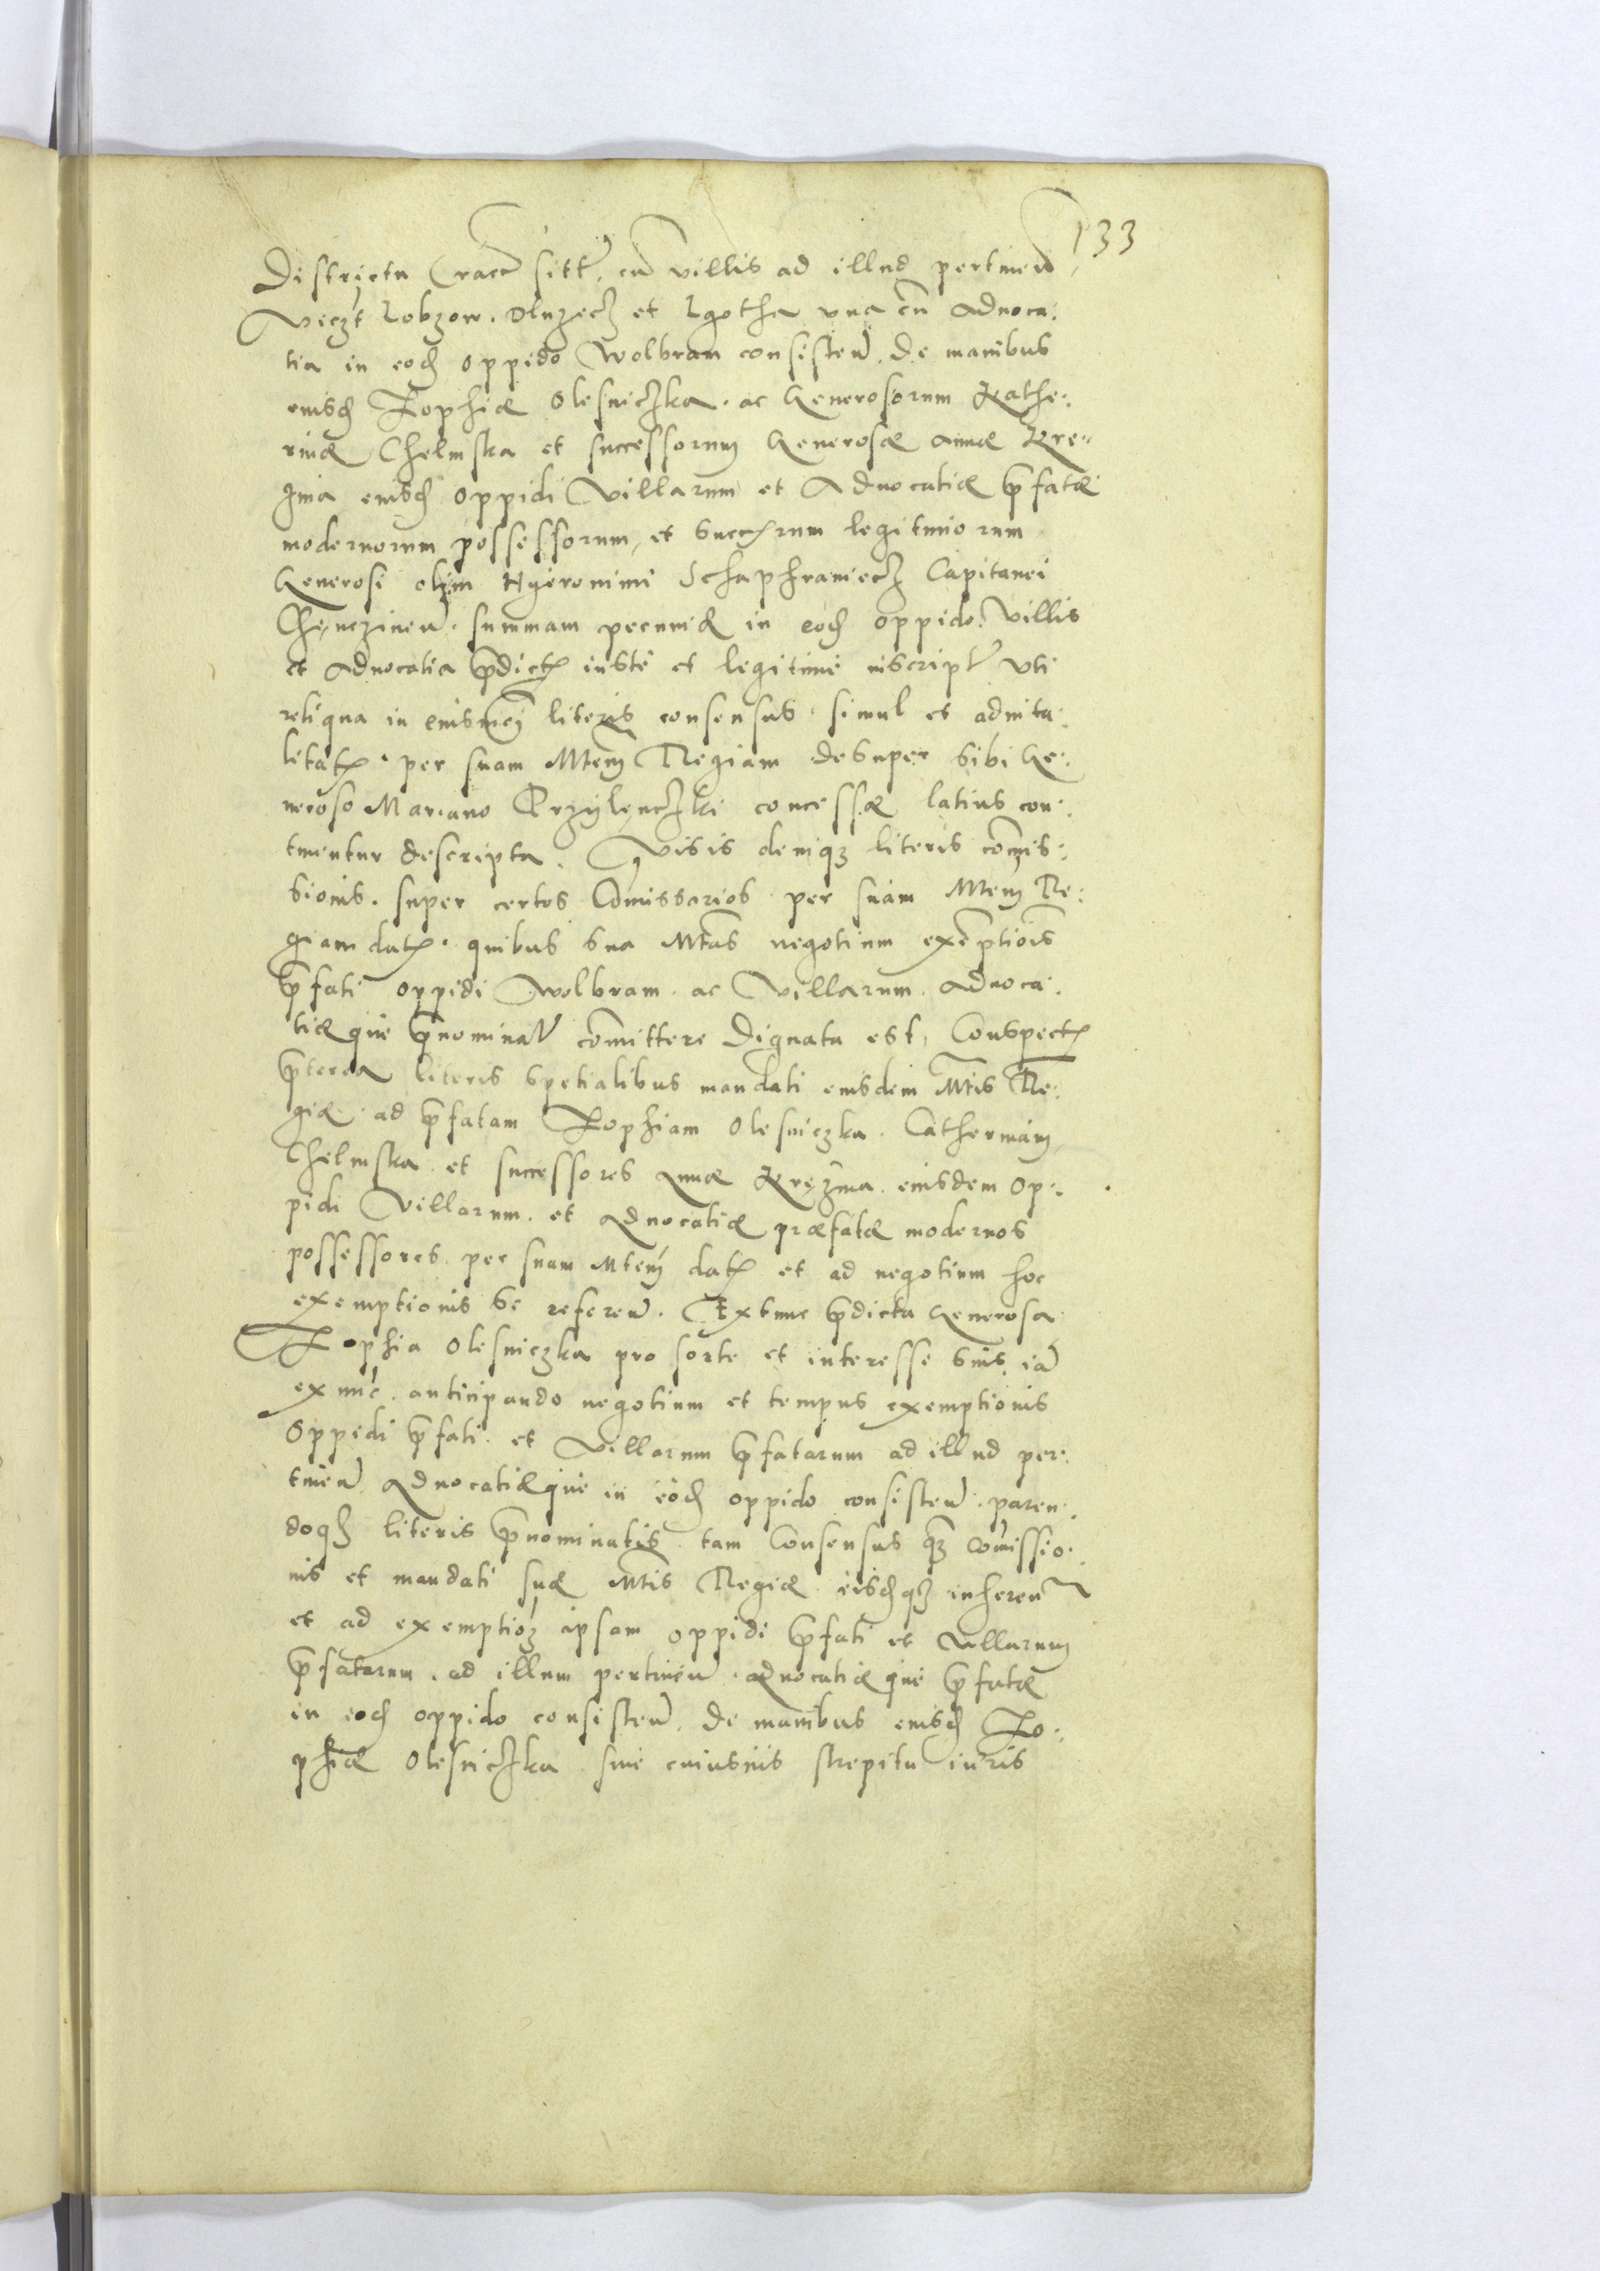 133
Districtu Cracꝰ sittꝰ, cū villis ad illud pertineñ
Veczt Lobzow. Dluzecz et Lgotha vna cū Aduoca:
tia in eod oppido Wolbram consisteñ. De manibus
eiusd Zophiæ Olesniczka. ac Generosorum Kathe:
rinæ Chelmska et successorum Generosæ Annæ Kre:
zina eiusd oppidi Villarum et Aduocatiæ p̄fatæ
modernorum possessorum, et succꝝrum legitimorum
Generosi olim Hyeronimi Schaphraniecz Capitanei
Chęnczineñ. summam pecuniæ in eod oppido. Villis
et Aduocatia p̄dictꝝ iuste et legitime inscriptꝰ vti
reliqua in eiusmoī literis consensus. simul et aduita:
litatꝝ. per suam Mtem Regiam desuper sibi Ge:
neroso Mariano Przylęnczki concessæ latius con:
tinentur descripta. Visis deniqꝫ literis com̄is:
sionis. super certos Com̄issarios per suam Mtem Re:
giam datꝝ. quibus sua Mtas negotium exemptiōis
p̄fati oppidi Wolbram. ac Villarum. Aduoca:
tiæque p̄nominatꝰ com̄ittere Dignata est, Conspectꝝ
p̄terea literis spetialibus mandati eiusdem Mtis Re:
giæ. ad p̄fatam Zophiam Olesniczka. Catherinam
Chelmska et successores Annæ Kręzina. eiusdem op:
pidi Villarum. et Aduocatiæ præfatæ modernos
possessores. per suam Mtem datꝝ et ad negotium hoc
exemptionis se refereñ. Extunc p̄dicta Generosa
Zophia Olesniczka pro sorte et interesse suis iā
ex nūc. anticipando negotium et tempus exemptionis
oppidi p̄fati. et Villarum p̄fatarum ad illud per:
tineñ Aduocatiæque in eod oppido consisteñ. paren:
doqꝫ literis p̄nominatis tam Consensus qꝫ com̄issio:
nis et mandati suæ Mtis Regiæ. eisdqꝫ inhereñ
et ad exemptioꝫ ipsam oppidi p̄fati et Villarum
p̄fatarum. ad illum pertineñ. Aduocatiæque p̄fatæ
in eod oppido consisteñ. de manibus eiusd Zo:
phiæ Olesniczka. sine cuiusuis strepitu iuris